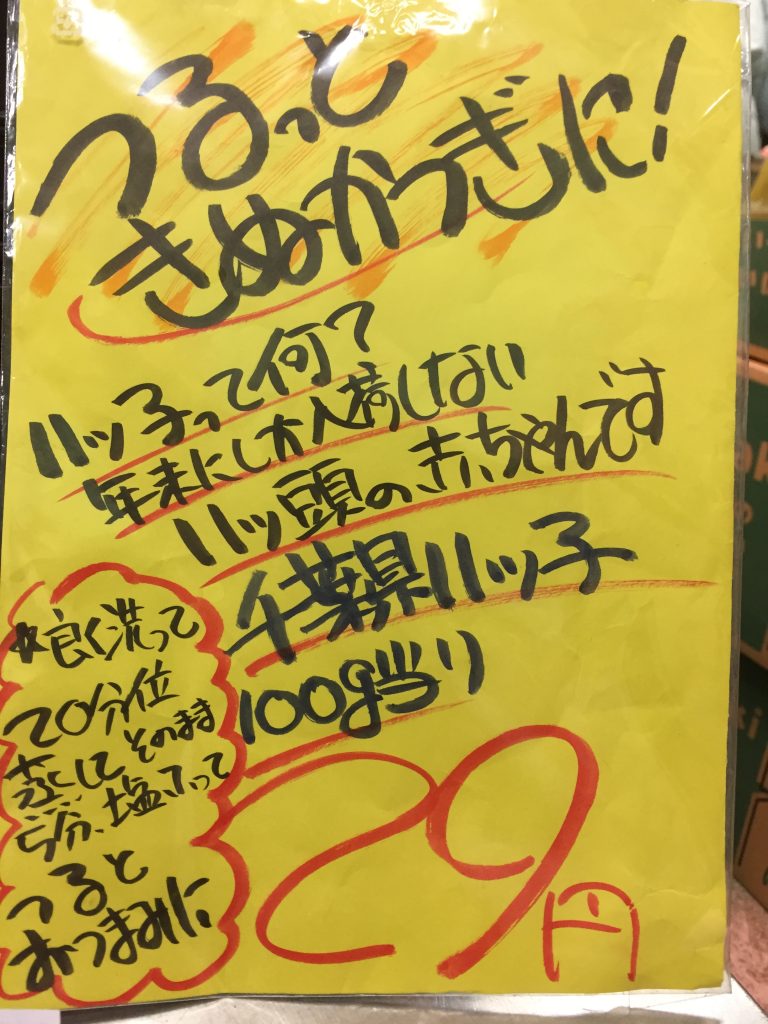 つるっと
きぬかつぎに!
八ッ子って何?
年末にしか入荷しない
八ッ頭の赤ちゃんです
千葉県八ッ子
100g当り
29円
*良く洗って
20分位
蒸してそのまま
5分、塩ふって
つると
おつまみに